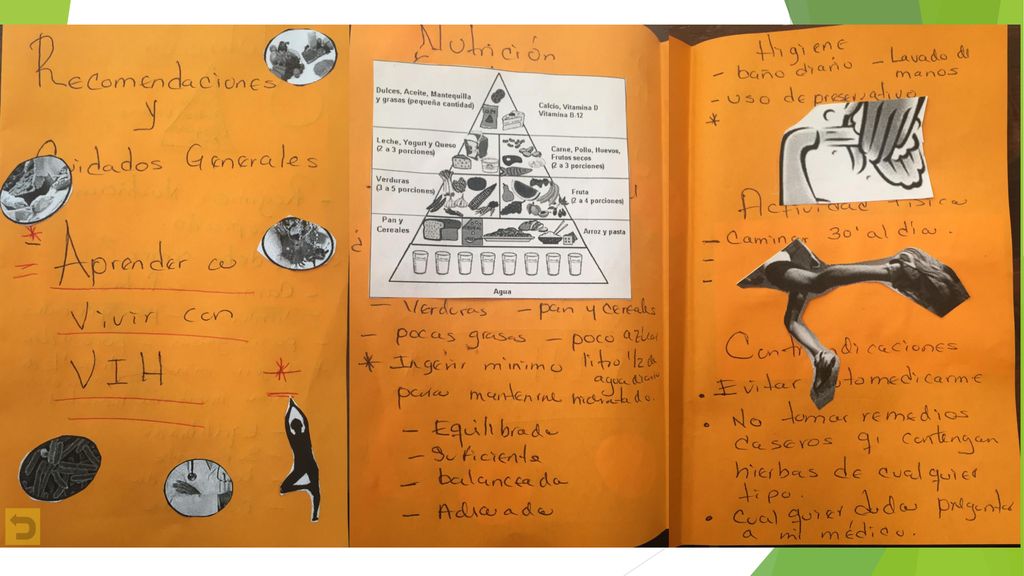 Recomendaciones
y
Cuidados Generales
*
Aprender a
Vivir con
VIH
*
Nutrición
Dulces, Aceite, Mantequilla
y grasas (pequeña cantidad)
Calcio, Vitamina D
Vitamina B-12
Leche, Yogurt y Queso
(2 a 3 porciones)
Carne, Pollo, Huevos,
Frutos secos
(2 a 3 porciones)
Verduras
(3 a 5 porciones)
Fruta
(2 a 4 porciones)
Pan y
Cereales
Arroz y pasta
Agua
- Verduras - pan y cereales
- pocas grasas - poco azúcar
* Ingerir minimo litro 1/2 de
agua diario
para mantenerme hidratado.
- Equilibrada
- Suficiente
- balanceada
- Adecuada
Higiene
- baño diario - Lavado de
manos
- uso de preservativo
*
Actividad fisica
- Caminar 30' al día.
-
-
Contraindicaciones
• Evitar automedicarme
• No tomar remedios
caseros q' contengan
hierbas de cualquier
tipo.
• Cualquier duda preguntar
a mi médico.